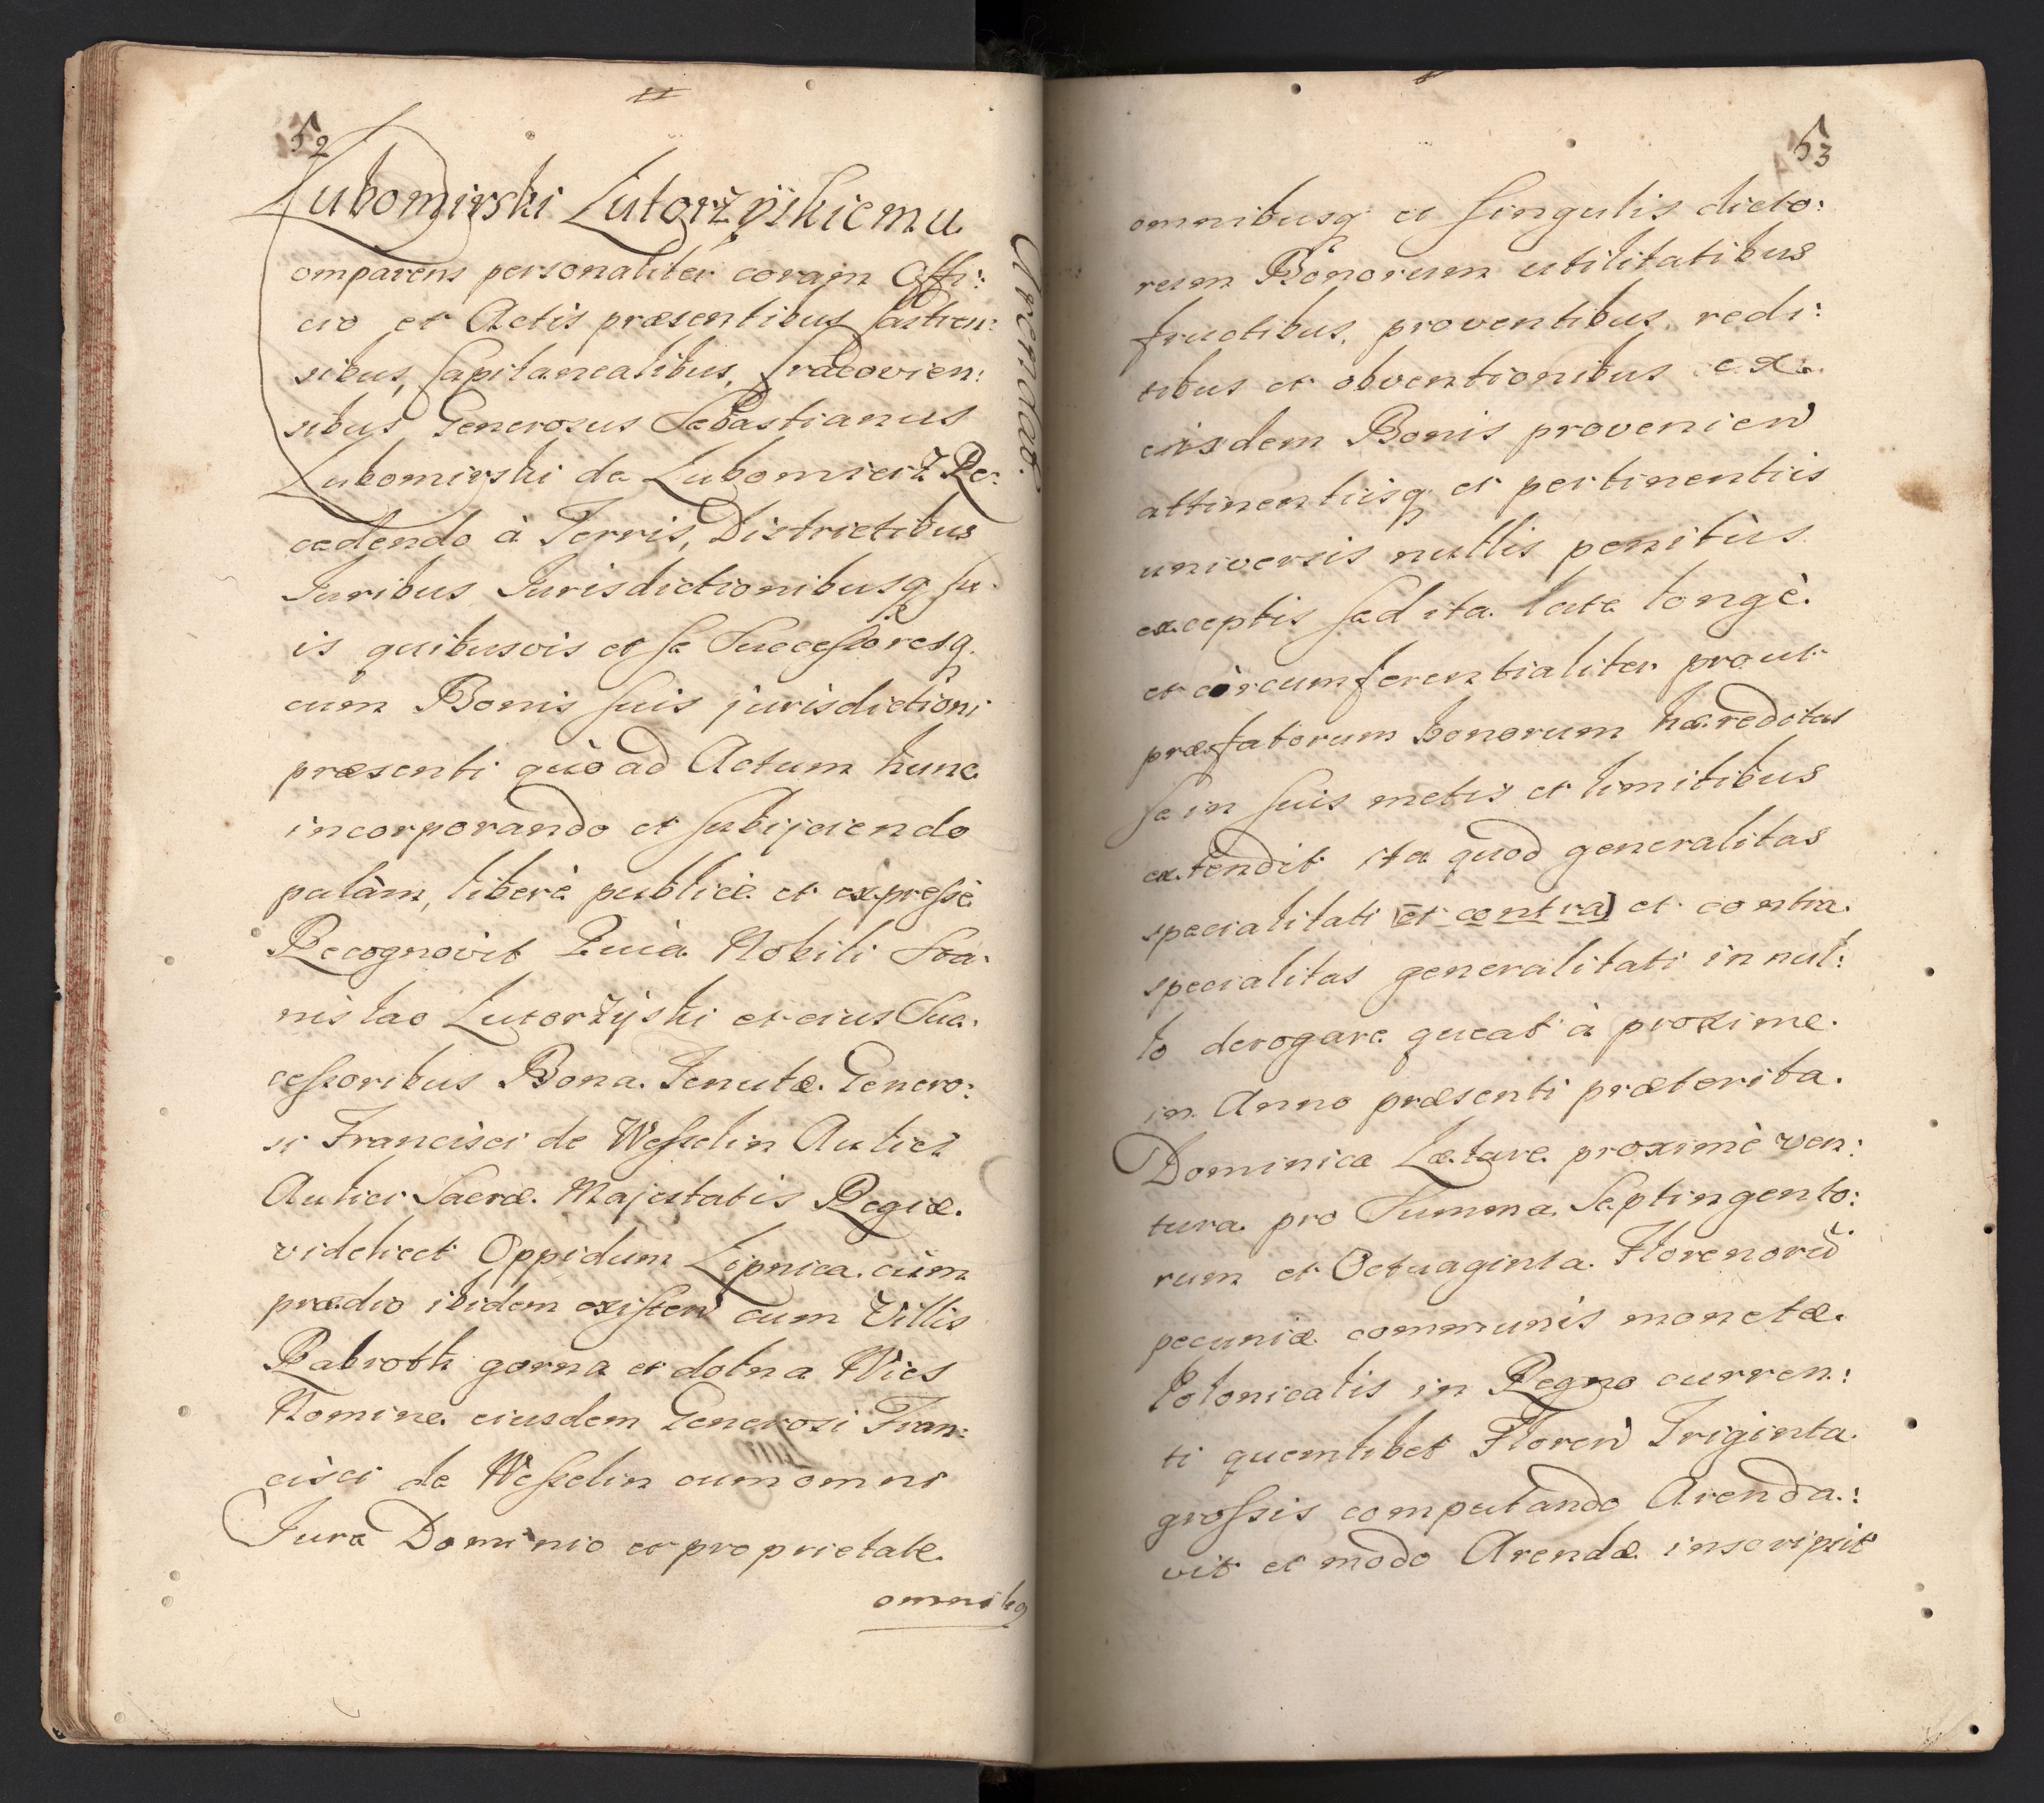 52
Lubomirski Lutorżÿskiemu
Arendat:
Comparens personaliter coram Offi:
cio et Actis præsentibus Castren:
sibus, Capitanealibus, Cracovien:
sibus Generosus Sebastianus
Lubomirski de Lubomierz Re:
cedendo à Terris, Districtibus
Juribus Jurisdictionibusq su
is quibusvis et se Successoresq.
cum Bonis suis jurisdictioni
præsenti quò ad Actum hunc
incorporando et subijciendo
palàm, liberè publicè et expressè
Recognovit Quia Nobili Sta:
nislao Lutorżyski et eius Suc:
cessoribus Bona Tenutæ Genero:
si Francisci de Wesselin Aulici
Aulici Sacræ Majestatis Regiæ
videlicet Oppidum Lipnica cùm
prædio ibidem existen cum Villis
Rabroth gorna et dolna Wies
Nomine eiusdem Generosi Fran:
cisci de Wesselin cum omni
Jure Dominio et proprietate
omnibq
53
omnibusq et singulis dicto:
rum Bonorum utilitatibus
fructibus, proventibus, redi:
tibus et obventionibus ex
eisdem Bonis provenien
attinentiisq et pertinentiis
universis nullis penitùs
exceptis sed ita late longè
et circumferentialiter prout
præfatorum bonorum hæreditas
se in suis metis et limitibus
extendit ita quod generalitas
specialitati [et contra] et contra
specialitas generalitati in nul:
lo derogare queat à proxime
in Anno præsenti præterita
Dominica Lætare proximè ven:
tura pro Summa Septingento:
rum et Octuaginta Florenorū
pecuniæ communis monetæ
Polonicalis in Regno curren:
ti quemlibet Floren Triginta
grossis computando Arenda:
vit et modo Arendæ inscripsit